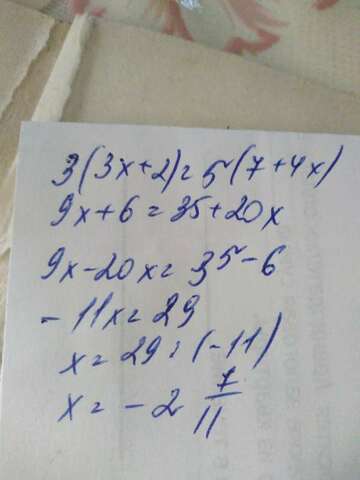 3(3x+2)=5(7+4x)
9x+6=35+20x
9x-20x=35-6
-11x=29
x=29:(-11)
x=-2 7/11